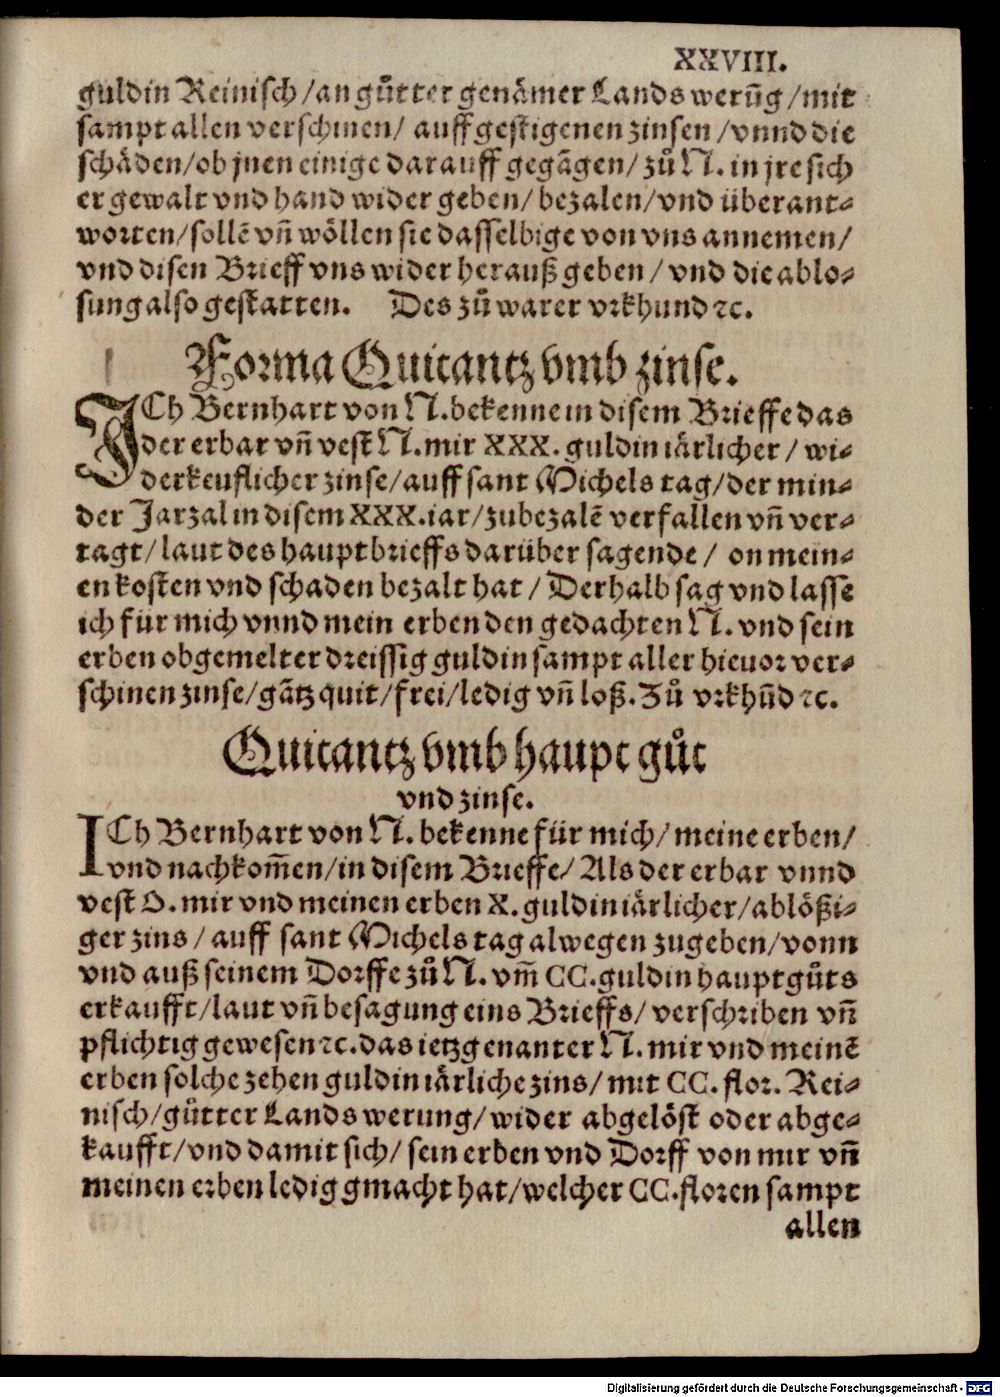 XXVIII.
guldin Reinisch/an gůtter genämer Lands werũg/mit
sampt allen verschinen/ auffgestigenen zinsen/vnnd die
schäden/ob jnen einige darauff gegãgen/zů N. in jre sich
er gewalt vnd hand wider geben/bezalen/vnd überant⸗
worten/sollẽ vñ wöllen sie dasselbige von vns annemen/
vnd disen Brieff vns wider herauß geben/vnd die ablo⸗
sung also gestatten. Des zů warer vrkhund ꝛc.
Forma Quitantz vmb zinse.
ICh Bernhart von N. bekenne in disem Brieffe das
der erbar vñ vest N. mir XXX. guldin iärlicher/ wi⸗
derkeuflicher zinse/auff sant Michels tag/der min⸗
der Jarzal in disem XXX. iar/zubezalẽ verfallen vñ ver⸗
tagt/laut des hauptbrieffs darüber sagende/ on mein⸗
en kosten vnd schaden bezalt hat/ Derhalb sag vnd lasse
ich für mich vnnd mein erben den gedachten N. vnd sein
erben obgemelter dreissig guldin sampt aller hieuor ver⸗
schinen zinse/gãtz quit/frei/ledig vñ loß. Zů vrkhũd ꝛc.
Quitantz vmb haupt gůt
vnd zinse.
ICh Bernhart von N. bekenne für mich/meine erben/
vnd nachkom̃en/in disem Brieffe/ Als der erbar vnnd
vest O. mir vnd meinen erben X. guldin iärlicher/ablößi⸗
ger zins/ auff sant Michels tag alwegen zugeben/vonn
vnd auß seinem Dorffe zů N. vm̃ CC. guldin hauptgůts
erkaufft/laut vñ besagung eins Brieffs/ verschriben vñ
pflichtig gewesen ꝛc. das ietzgenanter N. mir vnd meinẽ
erben solche zehen guldin iärliche zins/ mit CC. flor. Rei⸗
nisch/gůtter Lands werung/wider abgelöst oder abge⸗
kaufft/vnd damit sich/ sein erben vnd Dorff von mir vñ
meinen erben ledig gmacht hat/welcher CC. floren sampt
allen
Digitalisierung gefördert durch die Deutsche Forschungsgemeinschaft - DFG